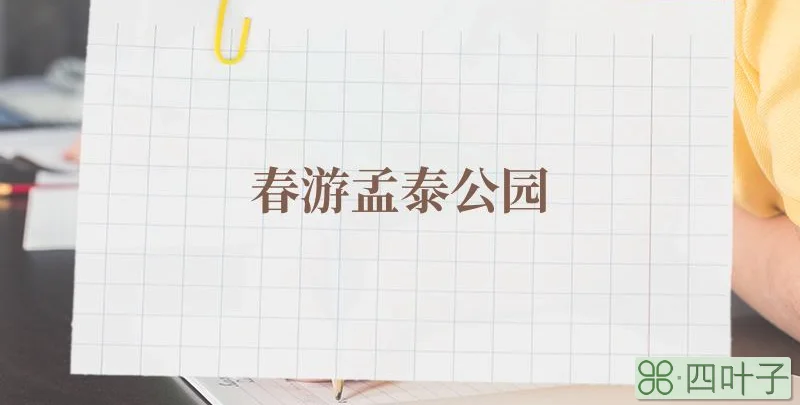 春游孟泰公园
⌘·四叶子